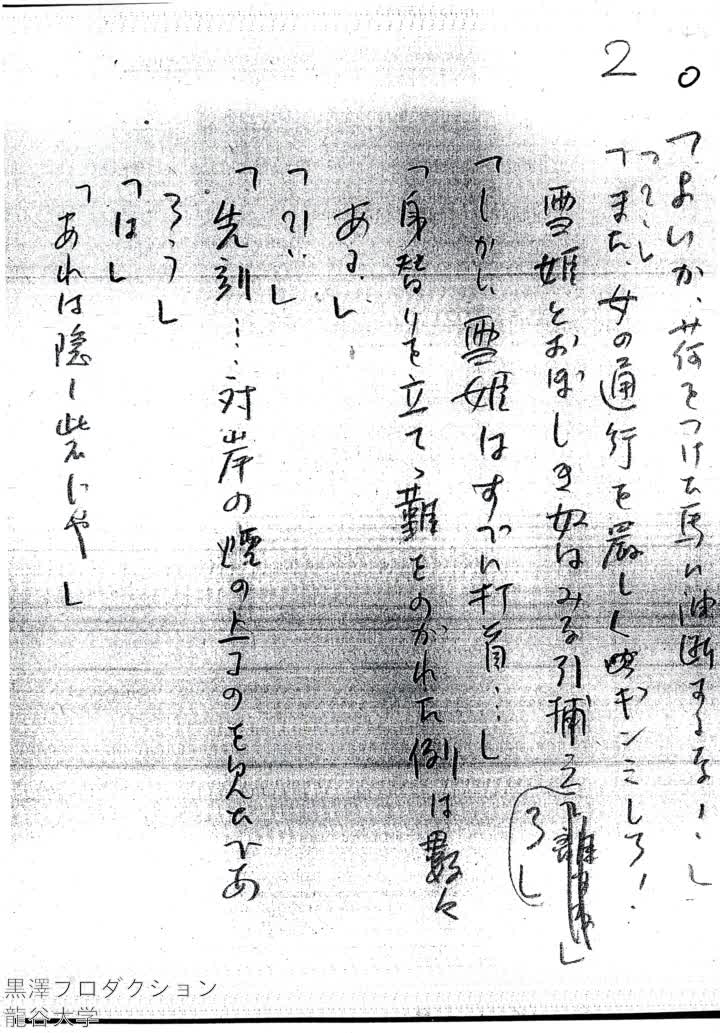 20
「よいか、荷をつけた馬に油断するな!」
「?…」
「また、女の通行を厳しく吟ギンミしろ!
雪姫とおぼしき奴はみな引捕えろ」
「しかし、雪姫はすでに打首…」
「身替りを立てゝ難をのがれた例は数々
ある」
「?…」
「先刻…対岸の煙の上るのを見たであ
ろう」
「はい」
「あれは隠し柴じや」
黒澤プロダクション
龍谷大学